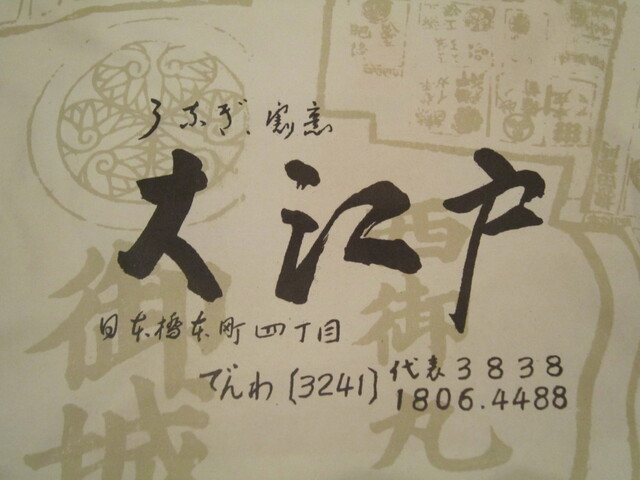 うなぎ、割烹
大江戸
日本橋本町四丁目
でんわ〔3241〕代表3838
1806.4488
御城
西御丸